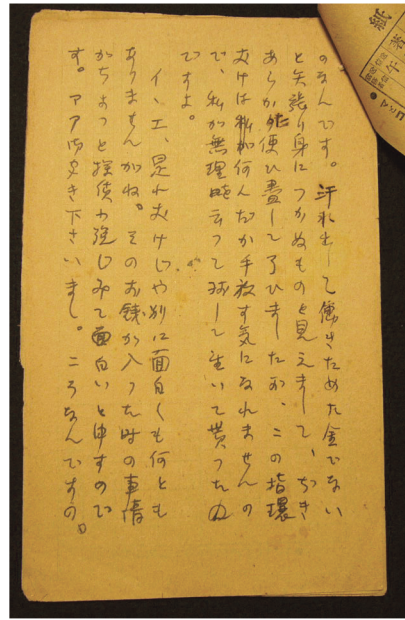 のなんです。汗水出して働きためた金でない
と矢張り身につかぬものと見えまして、ぢき
あらかた使ひ盡して了ひましたが、この指環
だけは私が何んだか手放す気になれませんの
で、私が無理云つて残して置いて貰つたの
ですよ。
イヽエ、是れだけじや別に面白くも何とも
ありませんがね。そのお銭が入つた時の事情
がちよつと探偵小説じみて面白いと申すので
す。アア御聞き下さいまし。こうなんですの。
紙